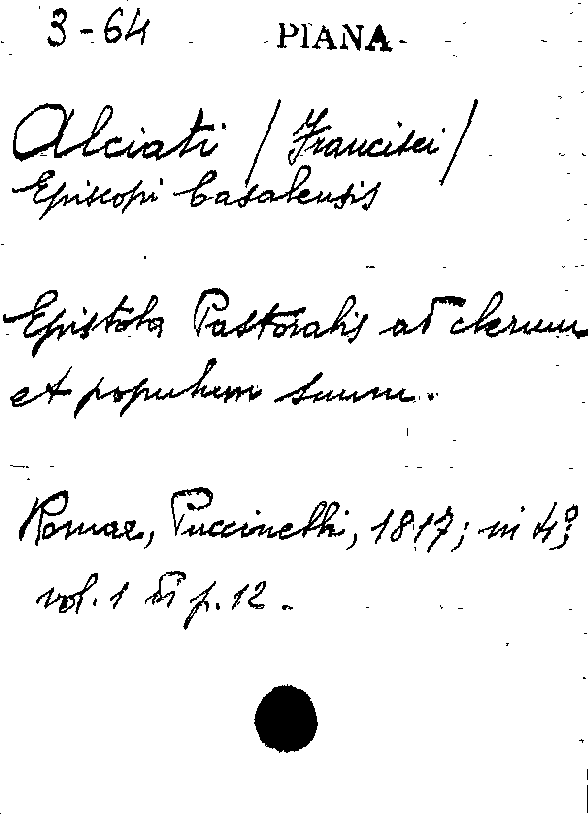 3-64 PIANA
Alciati / Francisci /
Episcopi Casalensis
Epistola Pastoralis ad clerum
et populum suum.
Romae, Puccinelli, 1817; in 4º;
vol. 1 di p. 12.